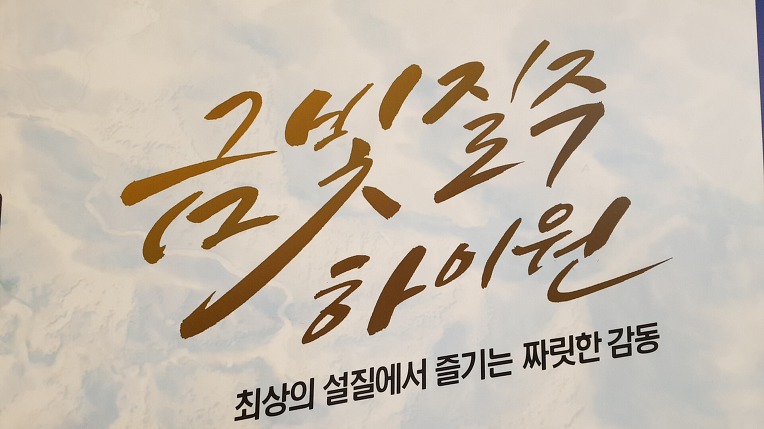 금빛질주
하이원
최상의 설질에서 즐기는 짜릿한 감동